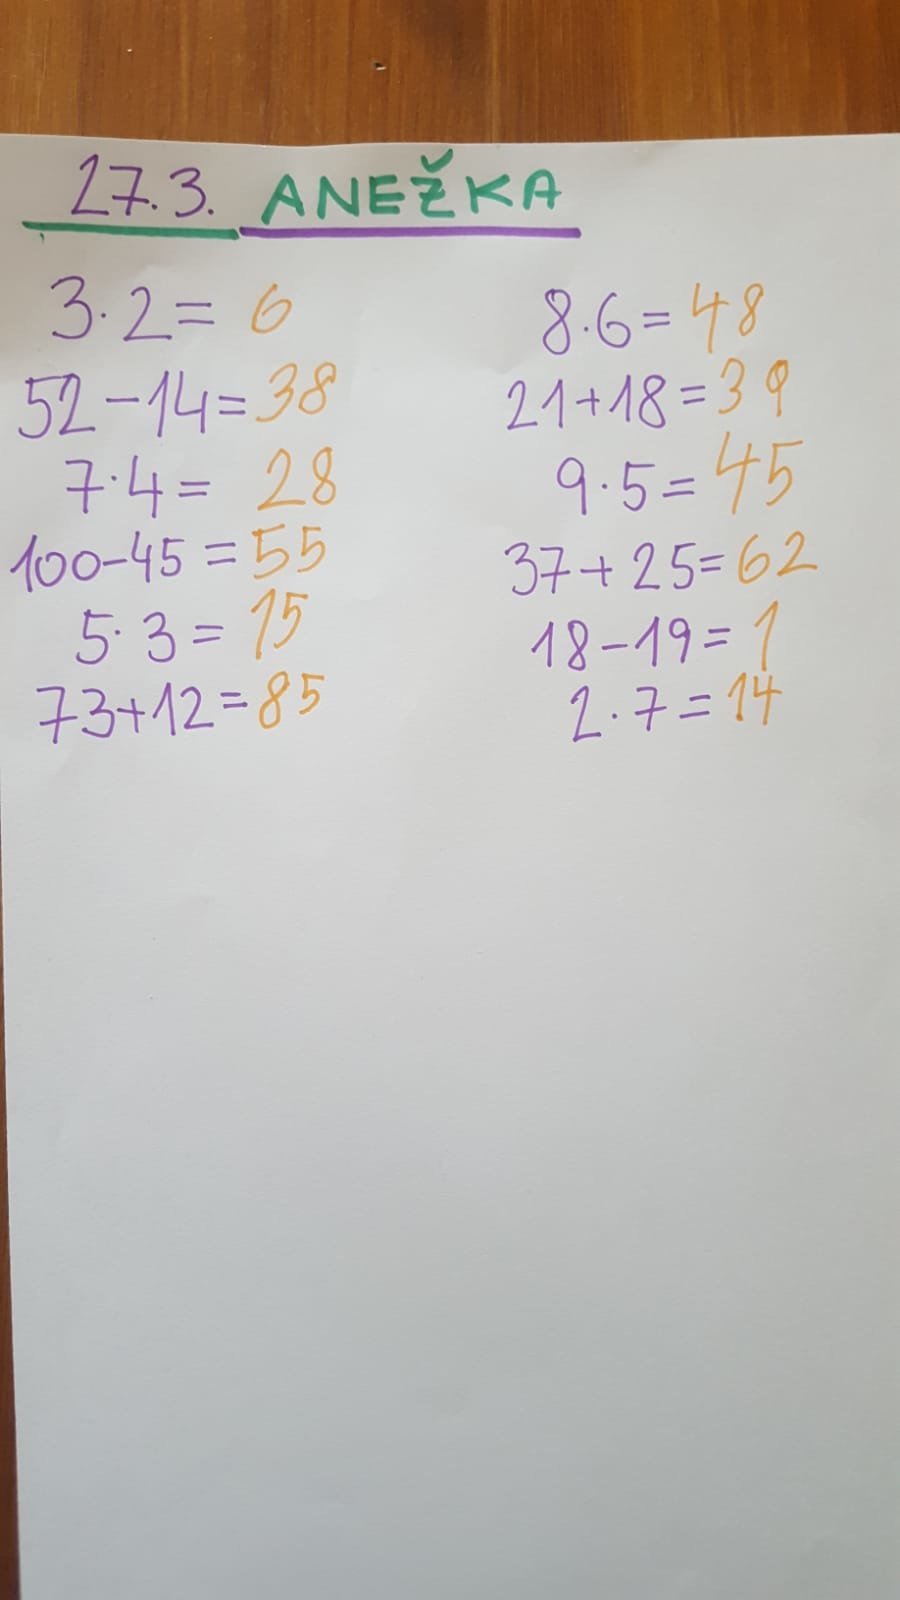 27.3. ANEŽKA
3·2= 6
52-14=38
7·4= 28
100-45=55
5·3= 15
73+12=85
8·6=48
21+18=39
9·5=45
37+25=62
18-19=1
2·7=14